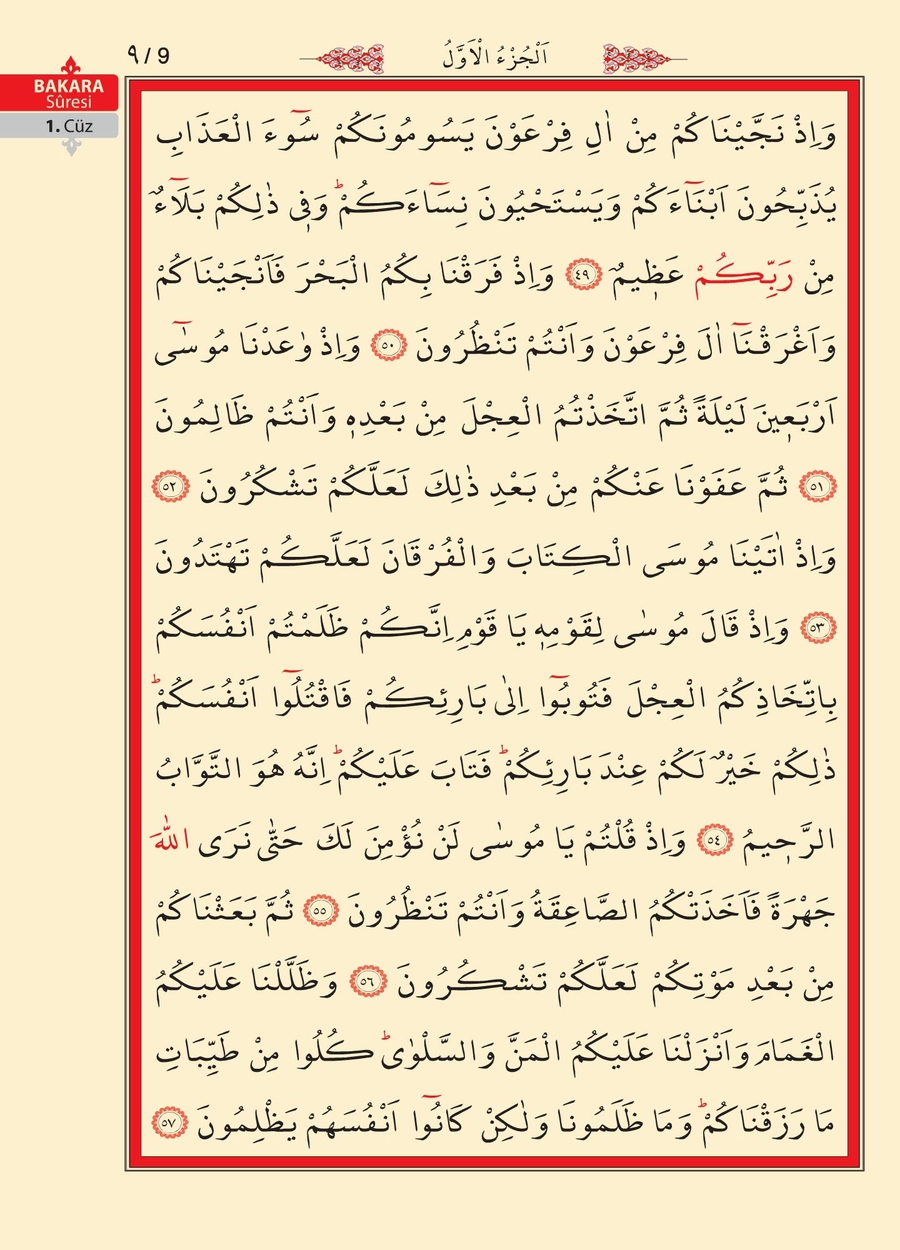 ٩ / 9
اَلْجُزْءُ الْاَوَّلُ
BAKARA
Sûresi
1. Cüz
وَاِذْ نَجَّيْنَاكُمْ مِنْ اٰلِ فِرْعَوْنَ يَسُومُونَكُمْ سُٓوءَ الْعَذَابِ
يُذَبِّحُونَ اَبْنَٓاءَكُمْ وَيَسْتَحْيُونَ نِسَٓاءَكُمْۜ وَف۪ي ذٰلِكُمْ بَلَٓاءٌ
مِنْ رَبِّكُمْ عَظ۪يمٌ ﴿٤٩﴾ وَاِذْ فَرَقْنَا بِكُمُ الْبَحْرَ فَاَنْجَيْنَاكُمْ
وَاَغْرَقْنَٓا اٰلَ فِرْعَوْنَ وَاَنْتُمْ تَنْظُرُونَ ﴿٥٠﴾ وَاِذْ وٰعَدْنَا مُوسٰٓى
اَرْبَع۪ينَ لَيْلَةً ثُمَّ اتَّخَذْتُمُ الْعِجْلَ مِنْ بَعْدِه۪ وَاَنْتُمْ ظَالِمُونَ
﴿٥١﴾ ثُمَّ عَفَوْنَا عَنْكُمْ مِنْ بَعْدِ ذٰلِكَ لَعَلَّكُمْ تَشْكُرُونَ ﴿٥٢﴾
وَاِذْ اٰتَيْنَا مُوسَى الْكِتَابَ وَالْفُرْقَانَ لَعَلَّكُمْ تَهْتَدُونَ
﴿٥٣﴾ وَاِذْ قَالَ مُوسٰى لِقَوْمِه۪ يَا قَوْمِ اِنَّكُمْ ظَلَمْتُمْ اَنْفُسَكُمْ
بِاتِّخَاذِكُمُ الْعِجْلَ فَتُوبُٓوا اِلٰى بَارِئِكُمْ فَاقْتُلُٓوا اَنْفُسَكُمْۜ
ذٰلِكُمْ خَيْرٌ لَكُمْ عِنْدَ بَارِئِكُمْۜ فَتَابَ عَلَيْكُمْۜ اِنَّهُ هُوَ التَّوَّابُ
الرَّح۪يمُ ﴿٥٤﴾ وَاِذْ قُلْتُمْ يَا مُوسٰى لَنْ نُؤْمِنَ لَكَ حَتّٰى نَرَى اللّٰهَ
جَهْرَةً فَاَخَذَتْكُمُ الصَّاعِقَةُ وَاَنْتُمْ تَنْظُرُونَ ﴿٥٥﴾ ثُمَّ بَعَثْنَاكُمْ
مِنْ بَعْدِ مَوْتِكُمْ لَعَلَّكُمْ تَشْكُرُونَ ﴿٥٦﴾ وَظَلَّلْنَا عَلَيْكُمُ
الْغَمَامَ وَاَنْزَلْنَا عَلَيْكُمُ الْمَنَّ وَالسَّلْوٰىۜ كُلُوا مِنْ طَيِّبَاتِ
مَا رَزَقْنَاكُمْۜ وَمَا ظَلَمُونَا وَلٰكِنْ كَانُٓوا اَنْفُسَهُمْ يَظْلِمُونَ ﴿٥٧﴾